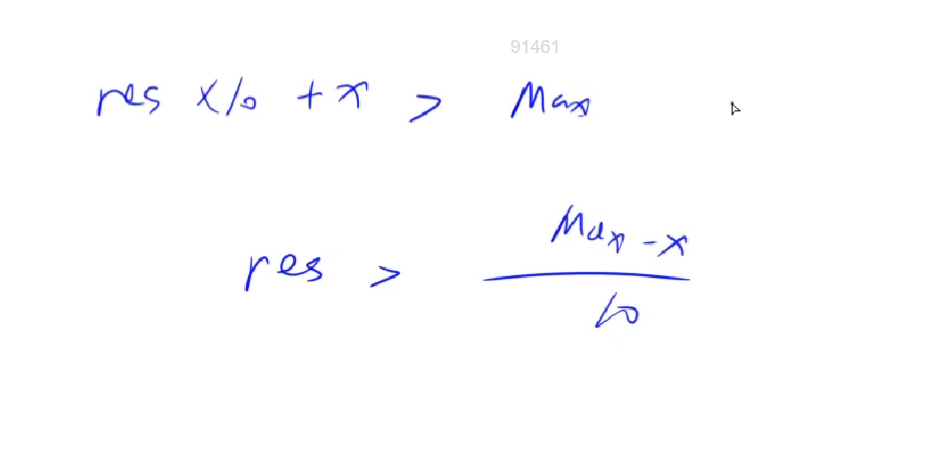 91461
res × 10 + x > Max
res > 
Max - x
10